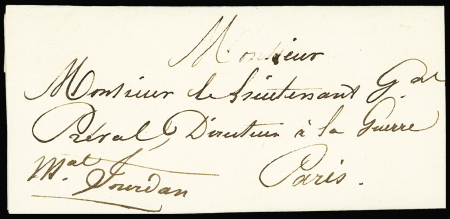 Monsieur
Monsieur le Lieutenant Gal
Préval, Directeur à la Guerre
Mal Jourdan Paris.